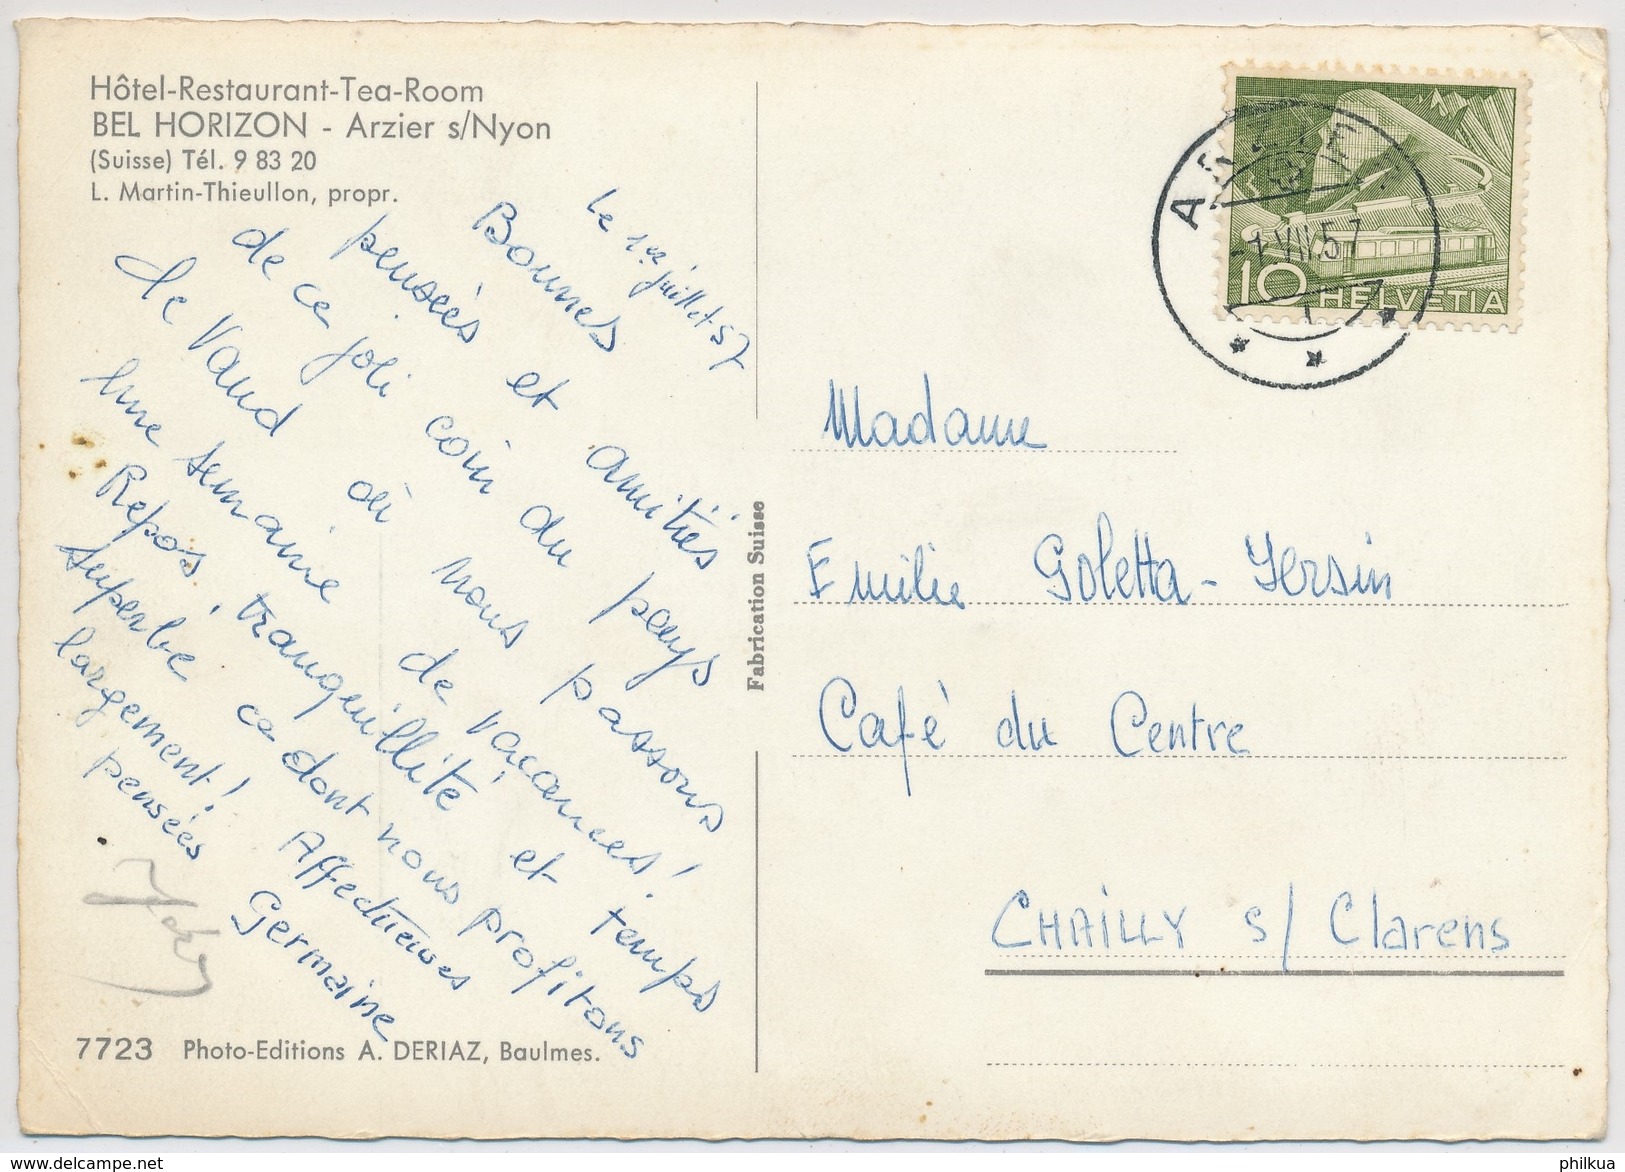 Hôtel-Restaurant-Tea-Room
BEL HORIZON - Arzier s/Nyon
(Suisse) Tél. 9 83 20
L. Martin-Thieullon, propr.
Le 1er juillet 57
Bonnes
pensées et amitiés
de ce joli coin du pays
de Vaud où nous passons
une semaine de vacances!
Repos, tranquillité et temps
superbe ce dont nous profitons
largement! Affectueuses
pensées Germaine
7723 Photo-Editions A. DERIAZ, Baulmes.
Fabrication Suisse
-1.VII.57
10 HELVETIA
Madame
Emilie Goletta-Yersin
Café du Centre
CHAILLY s/Clarens
philkua
www.delcampe.net